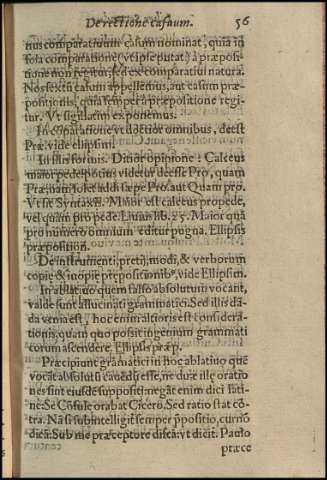 De rectione casuum. 56
nus comparatiuum casum nominat, quia in
sola comparatione (vt ipse putat) à præposi-
tione non regitur, sed ex comparatiui natura.
Nos sextū casum appellemus, aut casum præ-
positionis, quia semper à præpositione regi-
tur. Vt sigillatim exponemus.
In cōparatione vt doctior omnibus, deest
Præ. vide ellipsim.
In illis formis. Ditior opinione: Calceus
maior pede potius videtur deesse Pro, quam
Præ, nam solet addi sæpe Pro, aut Quam pro.
Vt sit Syntaxis. Maior est calceus pro pede,
vel quàm pro pede. Liuius lib. 25. Maior quā
pro numero omnium editur pugna. Ellipsis
præposition.
De instrumenti: pretij, modi, & verborum
copiæ & inopiæ præpositionibꝰ, vide Ellipsim.
In ablatiuo quem falso absolutum vocant,
valde sunt allucinati grammatici. Sed illis dā-
da venia est, hoc enim altioris est considera-
tionis, quam quo possit ingenium grammati
corum ascendere. Ellipsis præp.
Præcipiunt grāmatici in hoc ablatiuo quē
vocāt absolutū cauēdū esse, ne duæ illę oratio
nes sint eiusdē suppositi: negāt enim dici lati-
ne: Se Cōsule orabat Cicero. Sed ratio stat cō-
tra. Nā si subintelligit semper ppositio, cur nō
dicā: Sub me præceptore discā: vt dicit. Paulo
præce